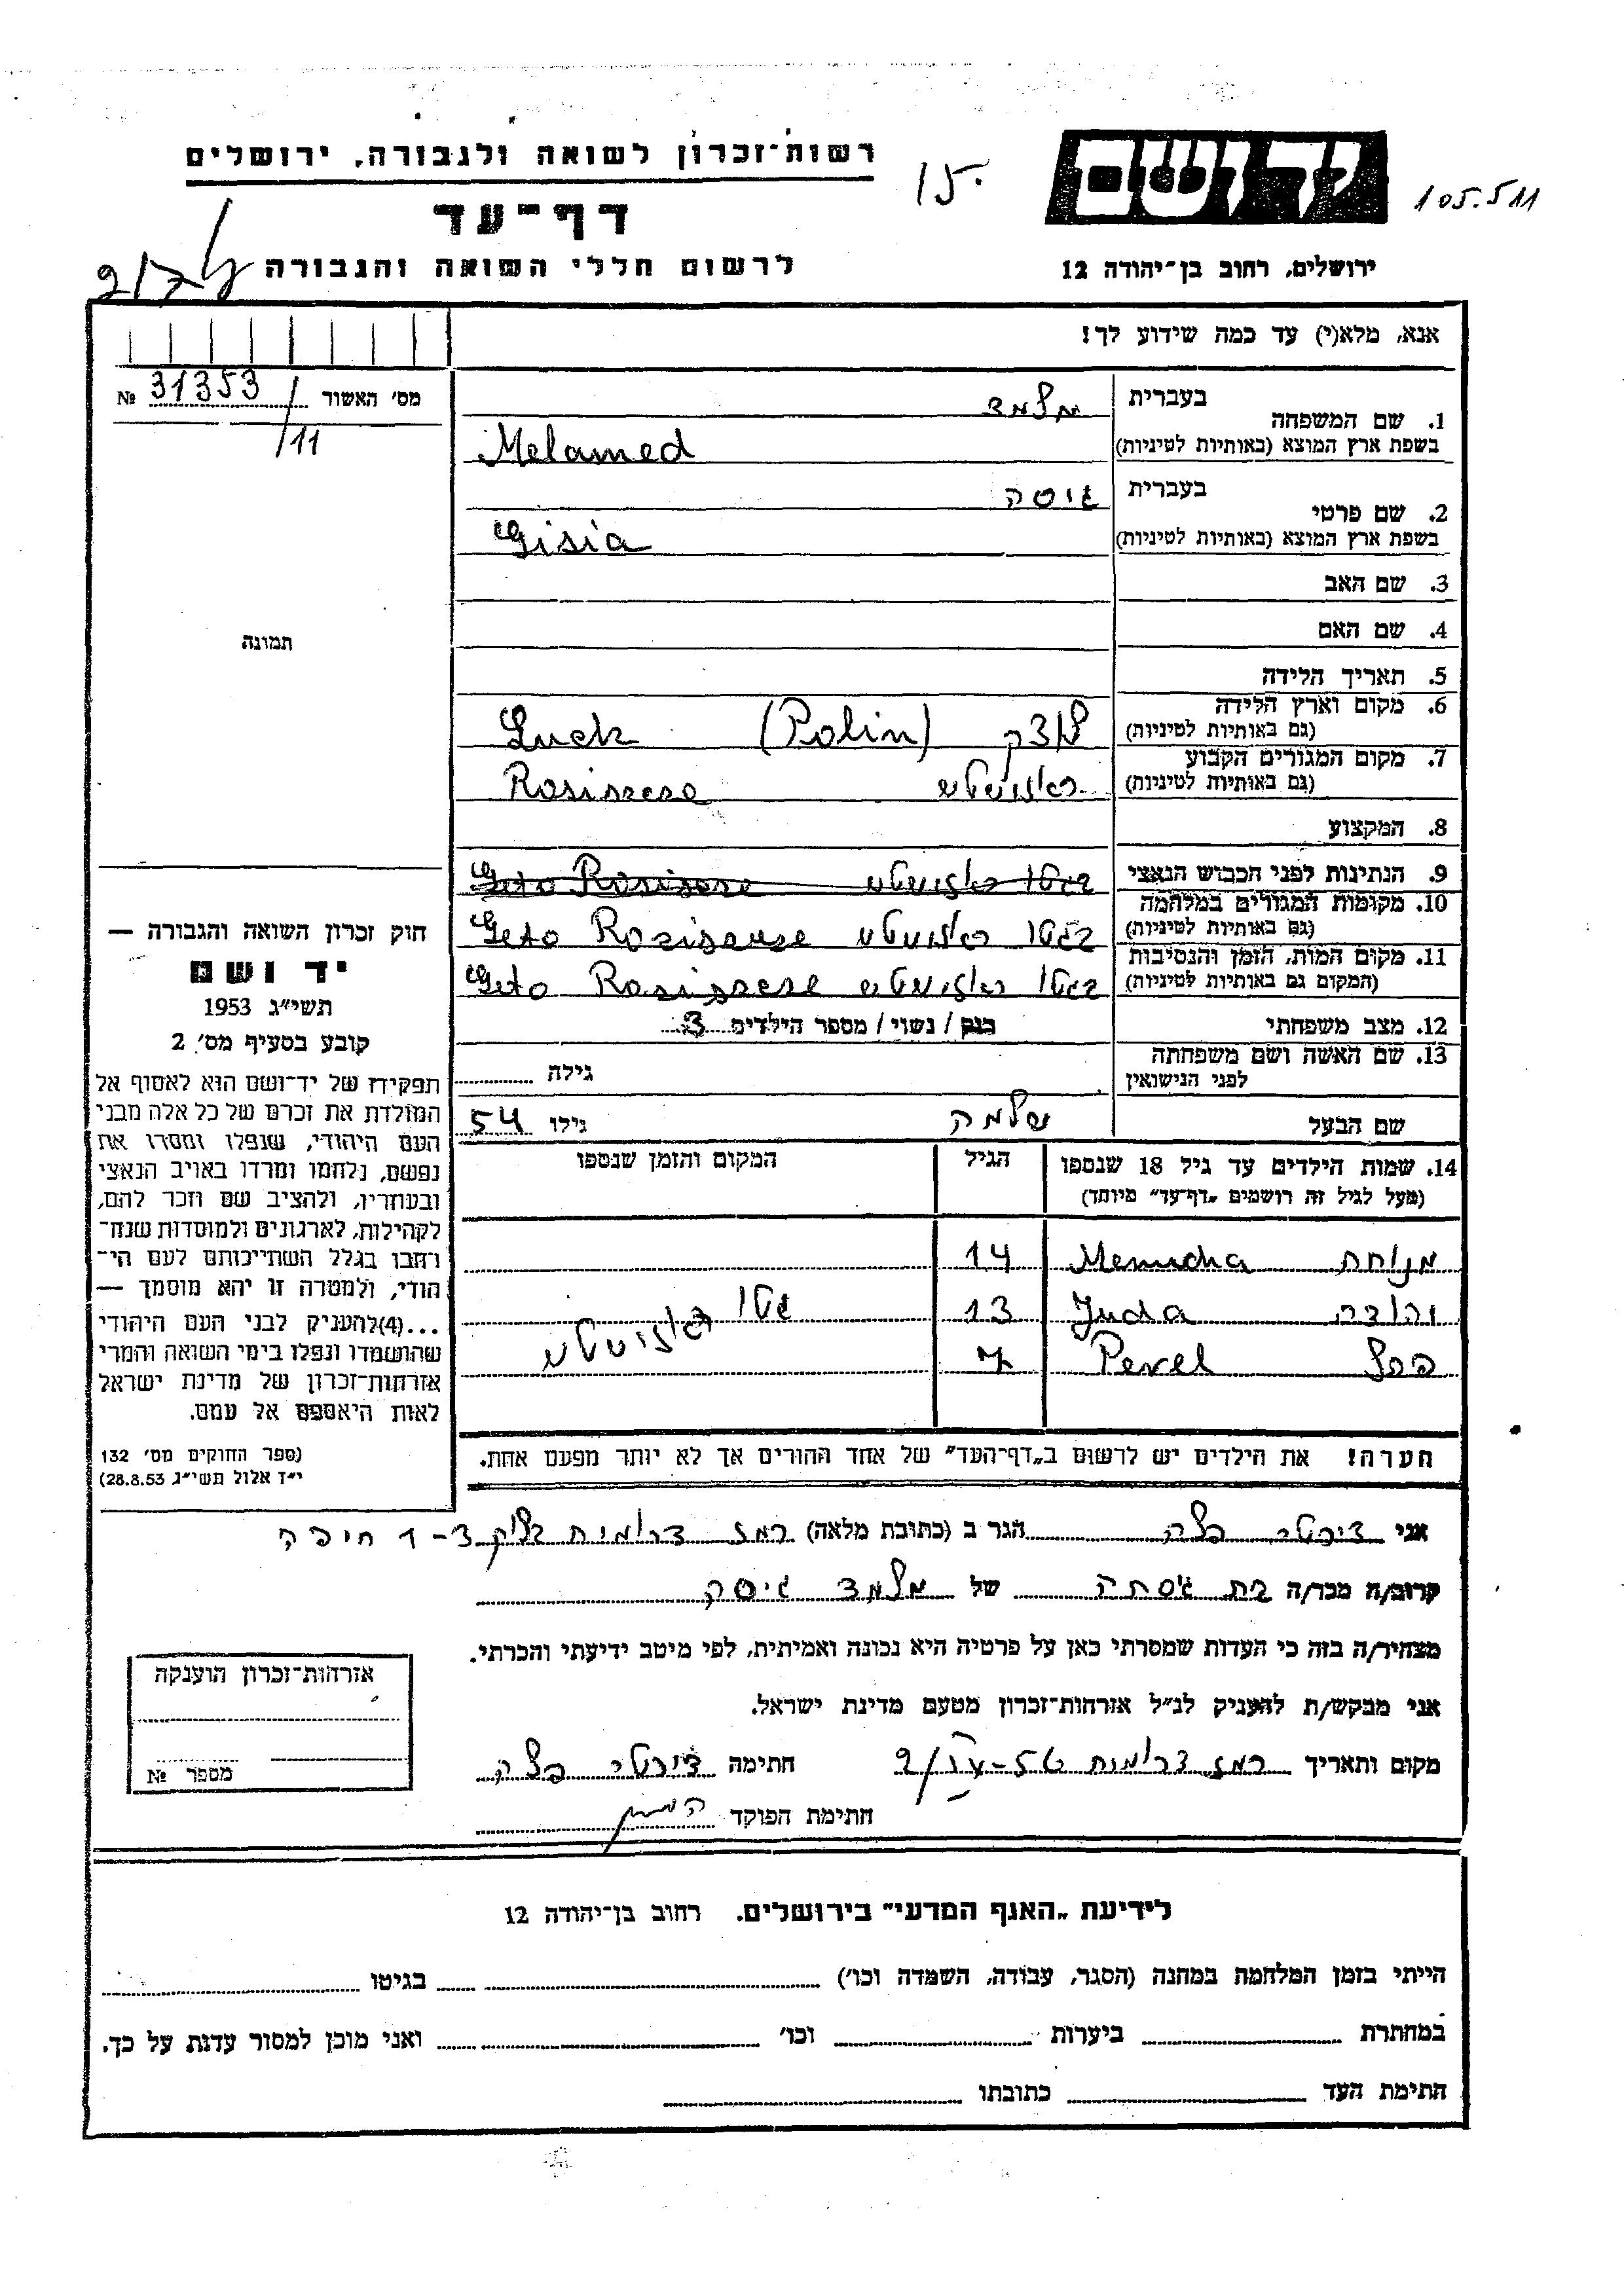 רשות־זכרון לשואה ולגבורה, ירושלים
דף־עד
לרשום חללי השואה והגבורה
15.
יד ושם
105.511
ירושלים, רחוב בן־יהודה 12
אנא, מלא(י) עד כמה שידוע לך!
מס׳ האשור 31353 №
/11
תמונה
1. שם המשפחה בעברית מלמד
בשפת ארץ המוצא (באותיות לטיניות) Melamed
2. שם פרטי בעברית גיסה
בשפת ארץ המוצא (באותיות לטיניות) Gisia
3. שם האב
4. שם האם
5. תאריך הלידה
6. מקום וארץ הלידה לוצק (Polin) Luck
(גם באותיות לטיניות)
7. מקום המגורים הקבוע
(גם באותיות לטיניות)
8. המקצוע
9. הנתינות לפני הכבוש הנאצי
10. מקומות המגורים במלחמה
(גם באותיות לטיניות) בגטו Geto
11. מקום המות, הזמן והנסיבות
(המקום גם באותיות לטיניות) בגטו Geto
12. מצב משפחתי רווק / נשוי / מספר הילדים 3
13. שם האשה ושם משפחתה
לפני הנישואין גילה
שם הבעל שלמה גילו 54
14. שמות הילדים עד גיל 18 שנספו הגיל המקום והזמן שנספו
(מעל לגיל זה רושמים „דף־עד” מיוחד)
מנוחה Menucha 14
יהודה Juda 13 גטו
פסל Pesel 7
הערה! את הילדים יש לרשום ב„דף־העד” של אחד ההורים אך לא יותר מפעם אחת.
חוק זכרון השואה והגבורה —
יד ושם
תשי״ג 1953
קובע בסעיף מס׳ 2
תפקידו של יד־ושם הוא לאסוף אל
המולדת את זכרם של כל אלה מבני
העם היהודי, שנפלו ומסרו את
נפשם, נלחמו ומרדו באויב הנאצי
ובעוזריו, ולהציב שם וזכר להם,
לקהילות, לארגונים ולמוסדות שנח־
רבו בגלל השתייכותם לעם הי־
הודי, ולמטרה זו יהא מוסמך —
...(4) להעניק לבני העם היהודי
שהושמדו ונפלו בימי השואה והמרי
אזרחות־זכרון של מדינת ישראל
לאות היאספם אל עמם.
(ספר החוקים מס׳ 132
י״ז אלול תשי״ג 28.8.53)
אני הגר ב (כתובת מלאה) רמז דרומית בלוק 1-3 חיפה
קרוב/ה מכר/ה בת גיסתה של מלמד גיסה
מצהיר/ה בזה כי העדות שמסרתי כאן על פרטיה היא נכונה ואמיתית, לפי מיטב ידיעתי והכרתי.
אני מבקש/ת להעניק לנ״ל אזרחות־זכרון מטעם מדינת ישראל.
מקום ותאריך רמז דרומית חתימה
חתימת הפוקד
אזרחות־זכרון הוענקה
מספר №
לידיעת „האגף המדעי” בירושלים. רחוב בן־יהודה 12
הייתי בזמן המלחמה במחנה (הסגר, עבודה, השמדה וכו׳) בגיטו
במחתרת ביערות וכו׳ ואני מוכן למסור עדות על כך.
חתימת העד כתובתו